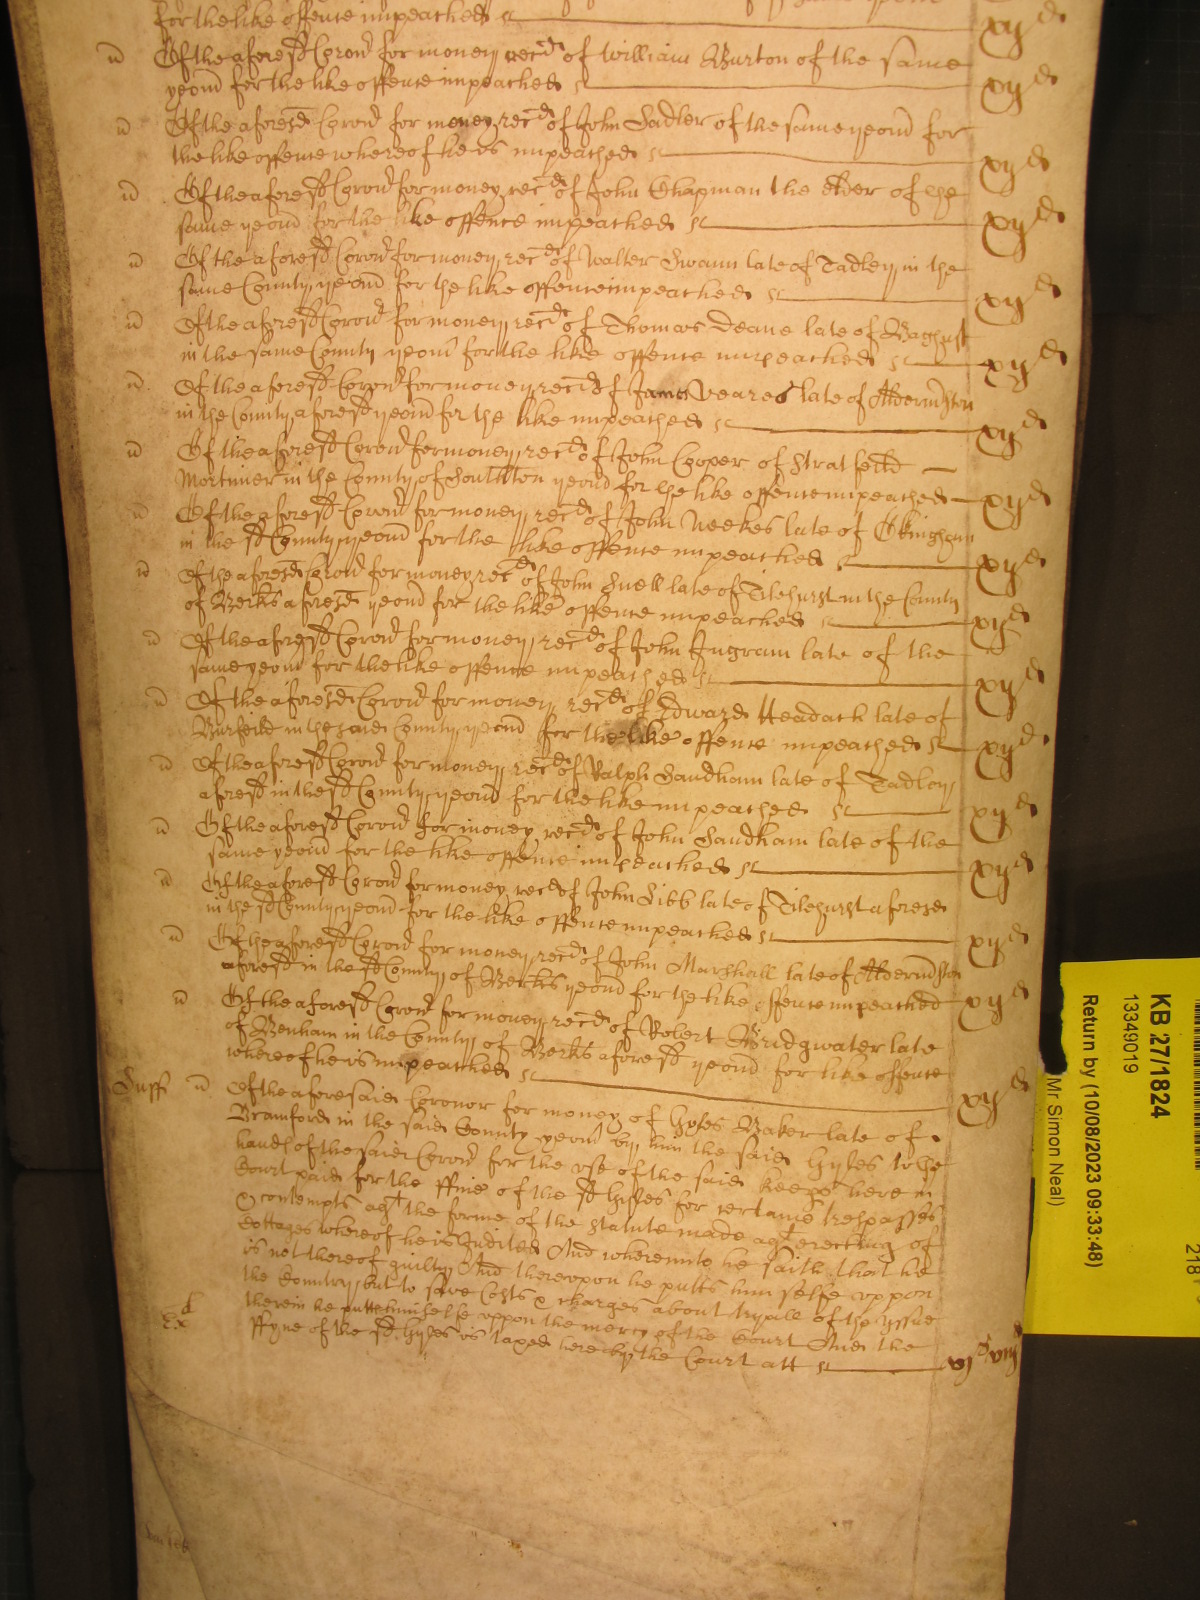 for the like offence impeached st xijd
Of the aforesd Coronr for money recd of William Burton of the same
yeom for the like offence impeached st xijd
Of the aforesd Coronr for money recd of John Sadler of the same yeom for
the like offence whereof he is impeached st xijd
Of the aforesd Coronr for money recd of John Chapman the elder of the
same yeom for the like offence impeached st xijd
Of the aforesd Coronr for money recd of Walter Swann late of Tadley in the
same County yeom for the like offence impeached st xijd
Of the aforesd Coronr for money recd of Thomas Deane late of Baghust
in the same County yeom for the like offence impeached st xijd
Of the aforesd Coronr for money recd of James Veares late of Aldermston
in the County aforesd yeom for the like impeached st xijd
Of the aforesd Coronr for money recd of John Cooper of Stratfeild
Mortimer in the County of Southton yeom for the like offence impeached xijd
Of the aforesd Coronr for money recd of John Weekes late of Okingham
in the sd County yeom for the like offence impeached st xijd
Of the aforesd Coronr for money recd of John Snell late of Tilehurst in the County
of Berks aforesd yeom for the like offence impeached st xijd
Of the aforesd Coronr for money recd of John Ingram late of the
same yeom for the like offence impeached st xijd
Of the aforesd Coronr for money recd of Edward Headach late of
Burfeild in the said County yeom for the like offence impeached st xijd
Of the aforesd Coronr for money recd of Ralph Sandham late of Tadley
aforesd in the sd County yeom for the like impeached st xijd
Of the aforesd Coronr for money recd of John Sandham late of the
same yeom for the like offence impeached st xijd
Of the aforesd Coronr for money recd of John Libb late of Tilehurst aforesd
in the sd County yeom for the like offence impeached st xijd
Of the aforesd Coronr for money recd of John Marshall late of Aldermston
aforesd in the sd County of Berks yeom for the like offence impeached xijd
Of the aforesd Coronr for money recd of Robert Bridgwater late
of Benham in the County of Berks aforesd yeom for like offence
whereof he is impeached st xijd
Suff Of the aforesaid Coronor for money of Gyles Baker late of
Bramford in the said County yeom by him the said Gyles to the
hands of the said Coronr for the use of the said Keepers here in
Court paid for the ffine of the sd Gyles for certaine trespasses
& contempts agt the forme of the statute made agt erecting of
Cottages whereof he is Indited And whereunto he saith that he
is not thereof guilty And thereupon he putts him selfe uppon
the Country but to save Costs & charges about tryall of the yssue
therein he putts himselfe uppon the mercy of the Court And the
ffyne of the sd Gyles is taxed here by the Court att st vjs viijd
KB 27/1824
13349019
Return by (10/08/2023 09:33:48)
Mr Simon Neal)